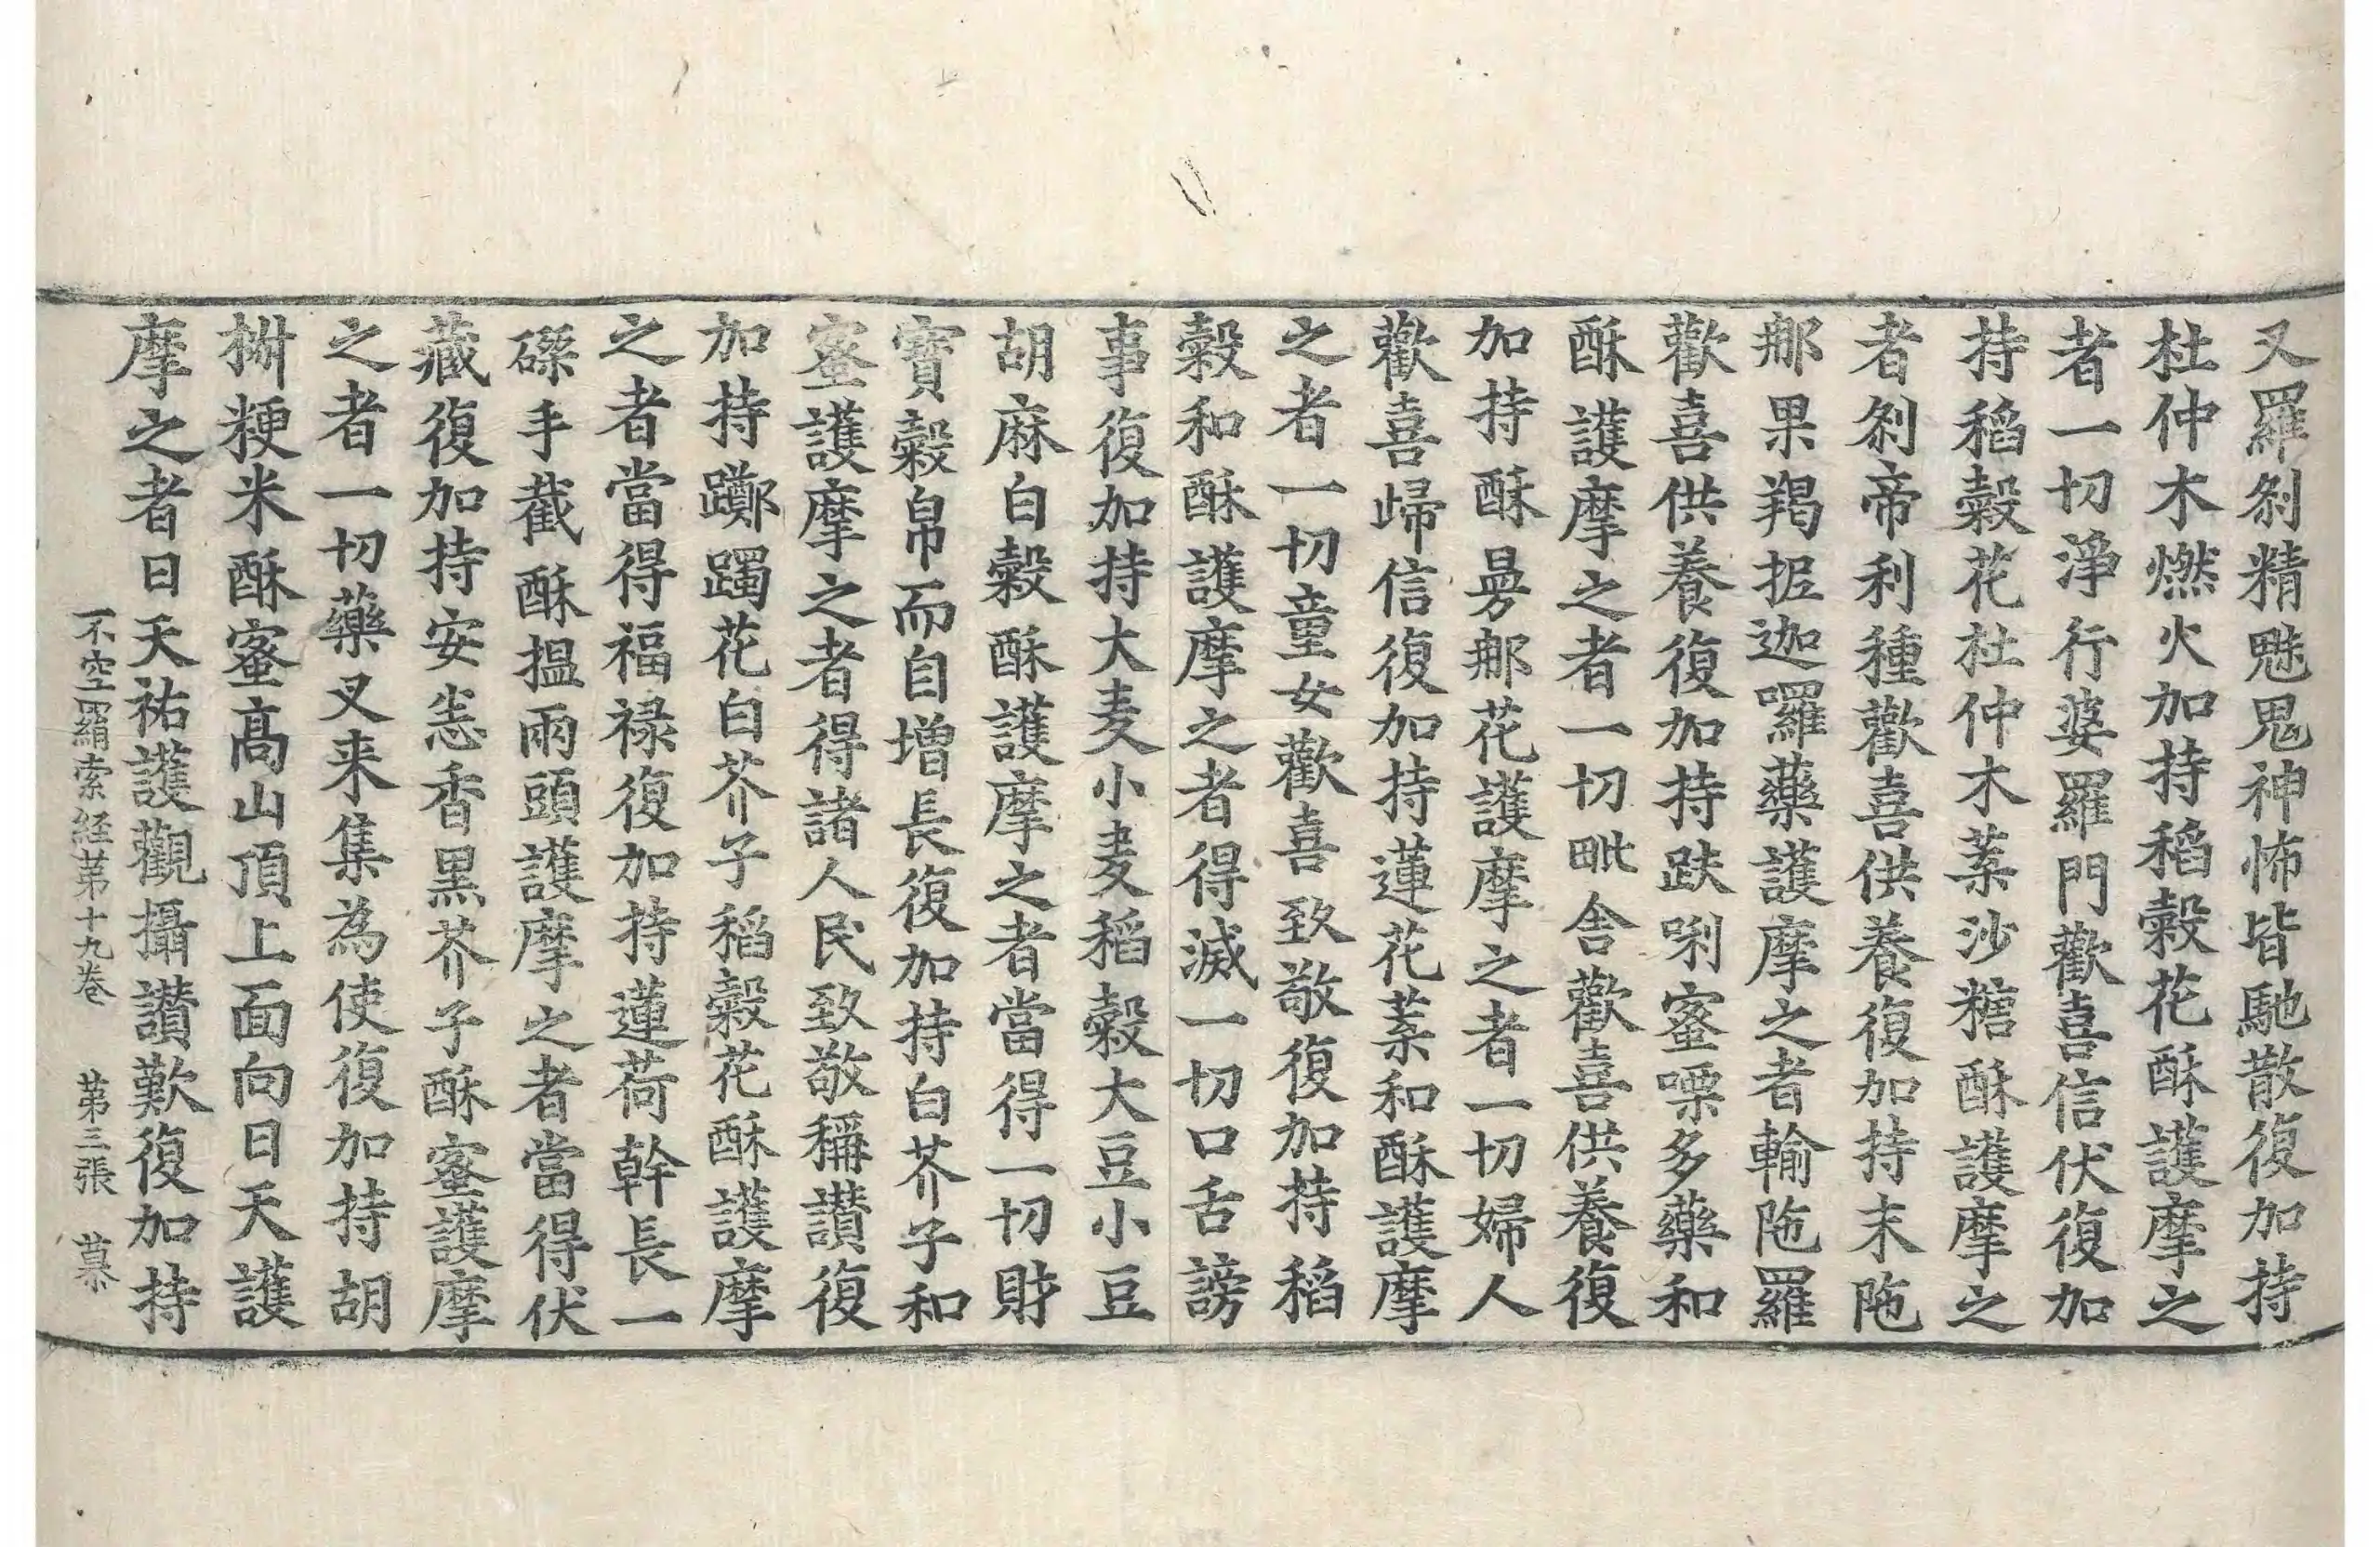 又羅剎精魅鬼神怖皆馳散復加持
杜仲木燃火加持稻穀花酥護摩之
者一切淨行婆羅門歡喜信伏復加
持稻穀花杜仲木葉沙糖酥護摩之
者剎帝利種歡喜供養復加持末陁
那果羯抳迦囉藥護摩之者輸陁羅
歡喜供養復加持趺唎蜜㗚多藥和
酥護摩之者一切毗舍歡喜供養復
加持酥曼那花護摩之者一切婦人
歡喜歸信復加持蓮花葉和酥護摩
之者一切童女歡喜致敬復加持稻
穀和酥護摩之者得滅一切口舌謗
事復加持大麦小麦稻穀大豆小豆
胡麻白穀酥護摩之者當得一切財
寶穀帛而自增長復加持白芥子和
蜜護摩之者得諸人民致敬稱讃復
加持躑躅花白芥子稻穀花酥護摩
之者當得福禄復加持蓮荷幹長一
磔手截酥揾兩頭護摩之者當得伏
藏復加持安悉香黑芥子酥蜜護摩
之者一切藥叉来集為使復加持胡
𣗋粳米酥蜜高山頂上面向日天護
摩之者日天祐護觀攝讃歎復加持
不空羂索経苐十九卷 苐三張 慕